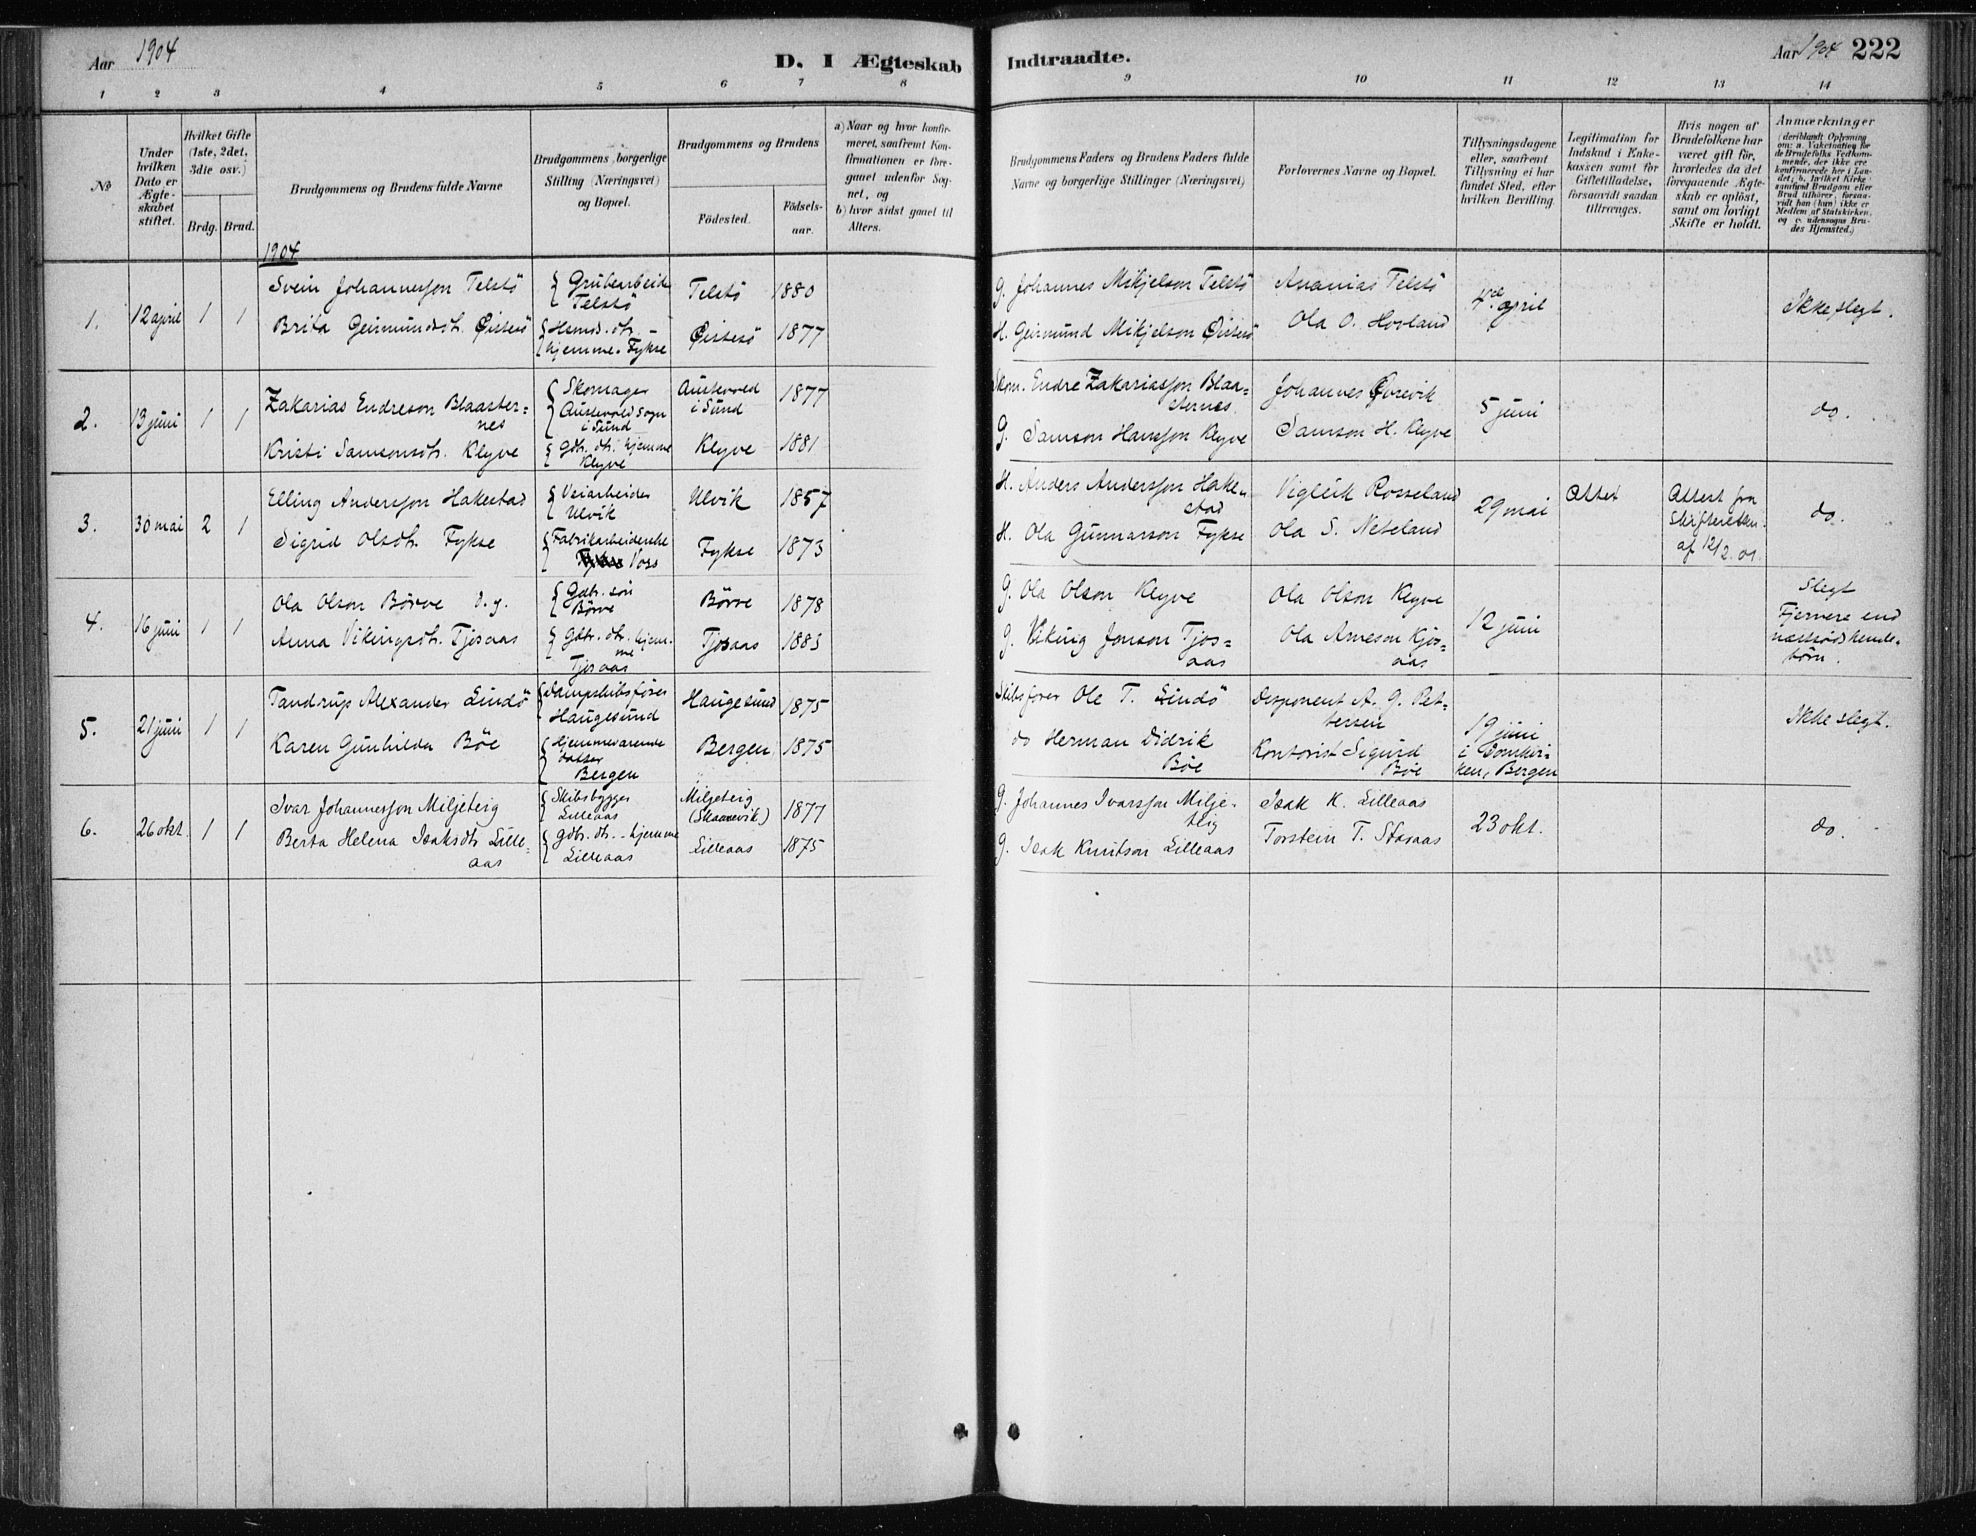 Aar 1904
D. I Ægteskab
Indtraadte.
Aar 1904 222
1 2 3 4 5 6 7 8 9 10 11 12 13 14
No
Under hvilken Dato er Ægteskabet stiftet.
Hvilket Gifte (1ste, 2det, 3die osv.)
Brdg. Brud.
Brudgommens og Brudens fulde Navne
Brudgommens borgerlige Stilling (Næringsvei) og Bopæl.
Brudgommens og Brudens
Födested.
Födselsaar.
a) Naar og hvor konfirmeret, saafremt Konfirmationen er foregaaet udenfor Sognet, og
b) hvor sidst gaaet til Alters.
Brudgommens Faders og Brudens Faders fulde Navne og borgerlige Stillinger (Næringsvei)
Forlovernes Navne og Bopæl.
Tillysningsdagene eller, saafremt Tillysning ei har fundet Sted, efter hvilken Bevilling.
Legitimation for Indskud i Enkekassen samt for Giftetilladelse, forsaavidt saadan tiltrænges.
Hvis nogen af Brudefolkene har været gift för, hvorledes da det foregaaende Ægteskab er oplöst, samt om lovligt Skifte er holdt.
Anmærkninger
(deriblandt Oplysning om: a. Vakcination for de Brudefolks Vedkommende, der ikke ere konfirmerede her i Landet; b. hvilket Kirkesamfund Brudgom eller Brud tilhörer, forsaavidt han (hun) ikke er Medlem af Statskirken, og c. udensogns Brudes Hjemsted.)
1904
1. 12 april 1 1
Svein Johannesson Telstö
Brita Geirmundsdt. Øistesö
Grubearbeider
Telstö
Hsmds. dtr. –
hjemme. Fykse
Telstö 1880
Øistesö 1877
G. Johannes Mikjelson Telstö
H. Geirmund Mikjelson Øistesö
Ananias Telstö
Ola O. Hovland
4de april
Ikke slegt.
2. 13 juni 1 1
Zakarias Endreson Blaaster=
nes
Kristi Samsonsdt. Klyve
Skomager
Austevold Sogn
i Sund
Gdbr. dtr. hjemme
Klyve
Austevold
i Sund 1877
Klyve 1881
Skom. Endre Zakariasson Blaa=
sternes
G. Samson Hansson Klyve
Johannes Øvrevik
Samson H. Klyve
5 juni
do.
3. 30 mai 2 1
Elling Andersson Hakestad
Sigrid Olsdt. Fykse
Veiarbeider
Ulvik
Fabrikarbeiderske
Voss
Ulvik 1857
Fykse 1873
H. Anders Andersson Hake=
stad
H. Ola Gunnarson Fykse
Vigleik Rosseland
Ola S. Neteland
29 mai
Attest
Attest fra
Skifteretten
af 12/2. 01.
do.
4. 16 juni 1 1
Ola Olson Börve d. y.
Anna Vikingsdt. Tjosaas
Gdbr. sön
Börve
Gdbr. dtr. hjem=
me
Tjosaas
Börve 1878
Tjosaas 1883
G. Ola Olson Klyve
G. Viking Jonson Tjos=
aas
Ola Olson Klyve
Ola Arneson Kjos=
aas
12 juni
Slegt
Fjernere end
næstsødskende=
börn.
5. 21 juni 1 1
Tandrup Alexander Lindö
Karen Gunhilda Böe
Dampskibsförer
Haugesund
Hjemmeværende
datter
Bergen
Haugesund 1875
Bergen 1875
Skibsförer Ole T. Lindö
do Herman Didrik
Böe
Disponent A. G. Pet=
tersen
Kontorist Sigurd
Böe
19 juni
i Domkir=
ken, Bergen
Ikke slegt.
6. 26 okt. 1 1
Ivar Johannesson Miljeteig
Berta Helena Isaksdt. Lille=
aas
Skibsbygger
Lilleaas
Gdbr. dtr. – hjemme
Lilleaas
Miljeteig
(Skaanevik) 1877
Lilleaas 1875
G. Johannes Ivarsson Milje=
teig
G. Isak Knutson Lilleaas
Isak K. Lilleaas
Torstein T. Staraas
23 okt.
do.